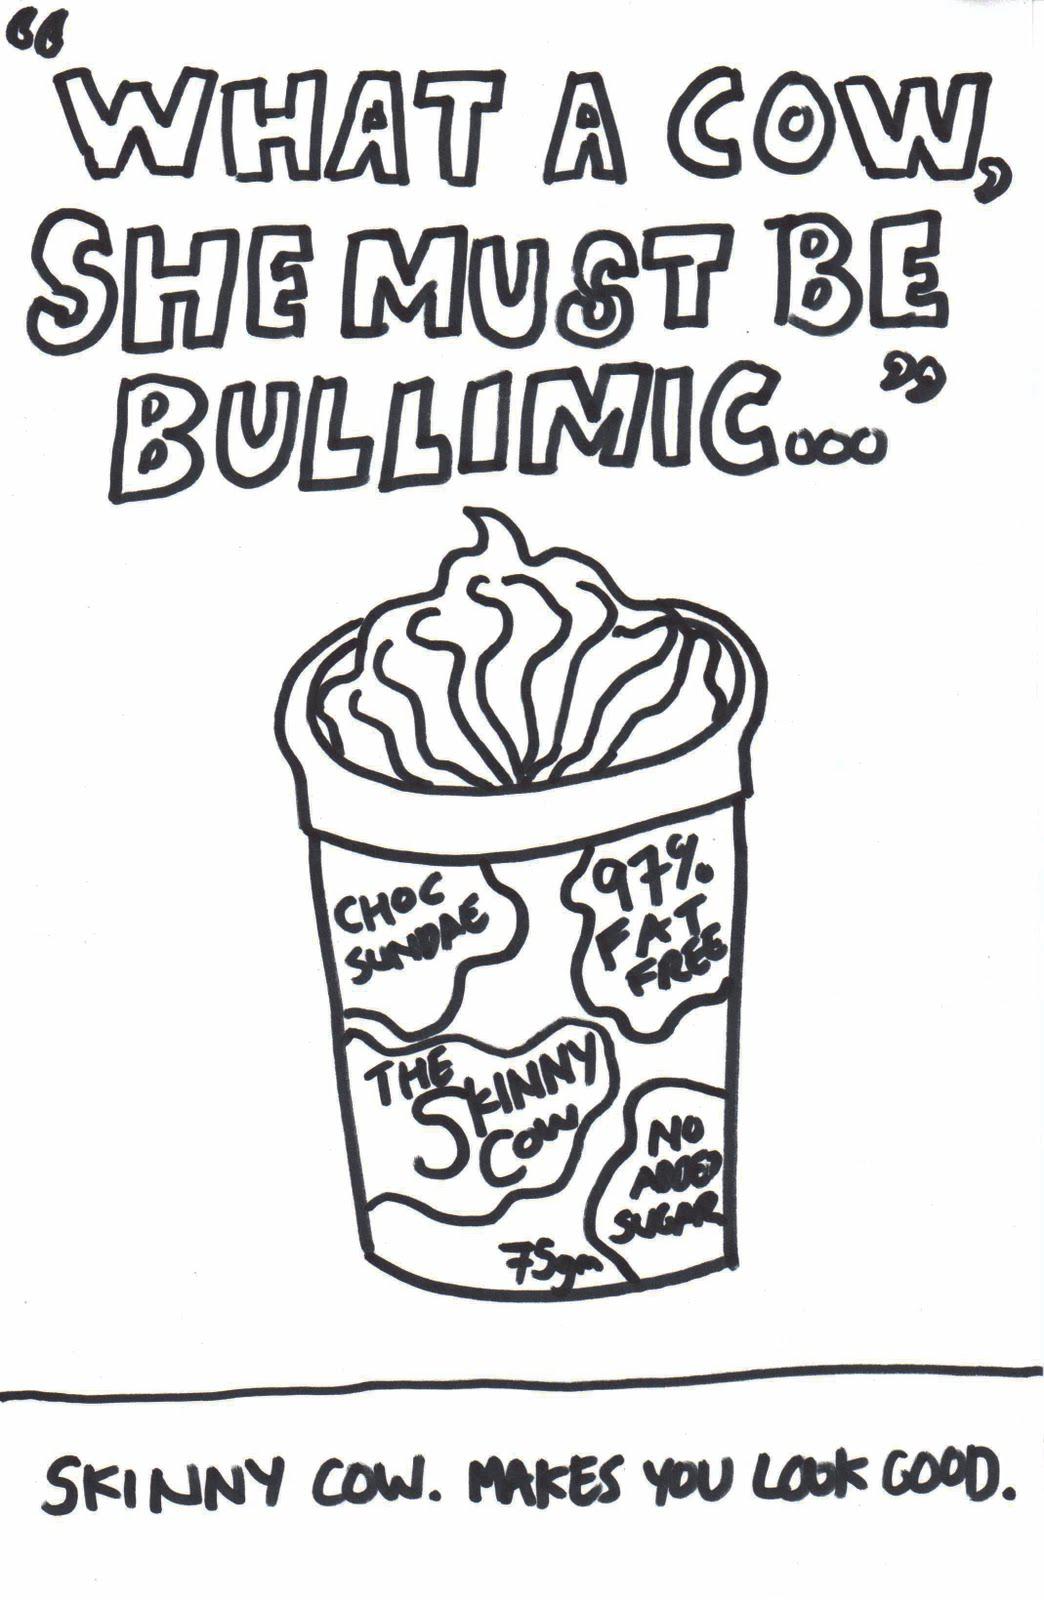 “WHAT A COW,
SHE MUST BE
BULLIMIC...”
CHOC
SUNDAE
97%
FAT
FREE
THE
SKINNY
COW
NO
ADDED
SUGAR
75gm
SKINNY COW. MAKES YOU LOOK GOOD.